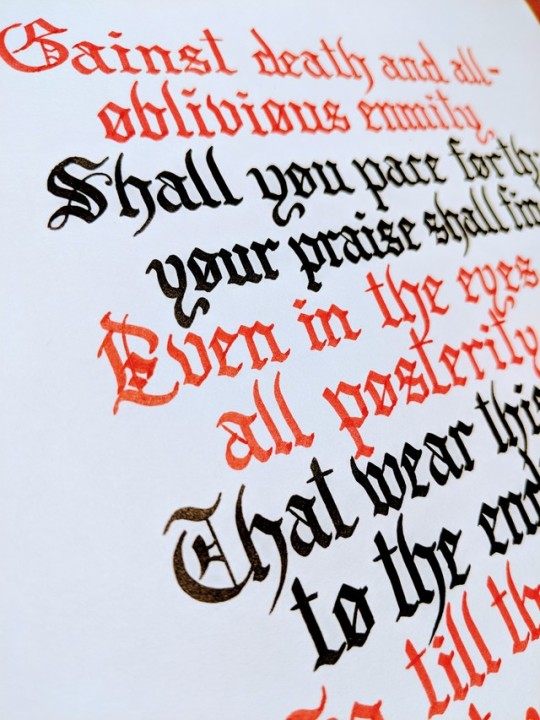 Gainst death and all-
oblivious enmity
Shall you pace forth
your praise shall fin
Even in the eyes
all posterity
That wear this
to the end
So till th